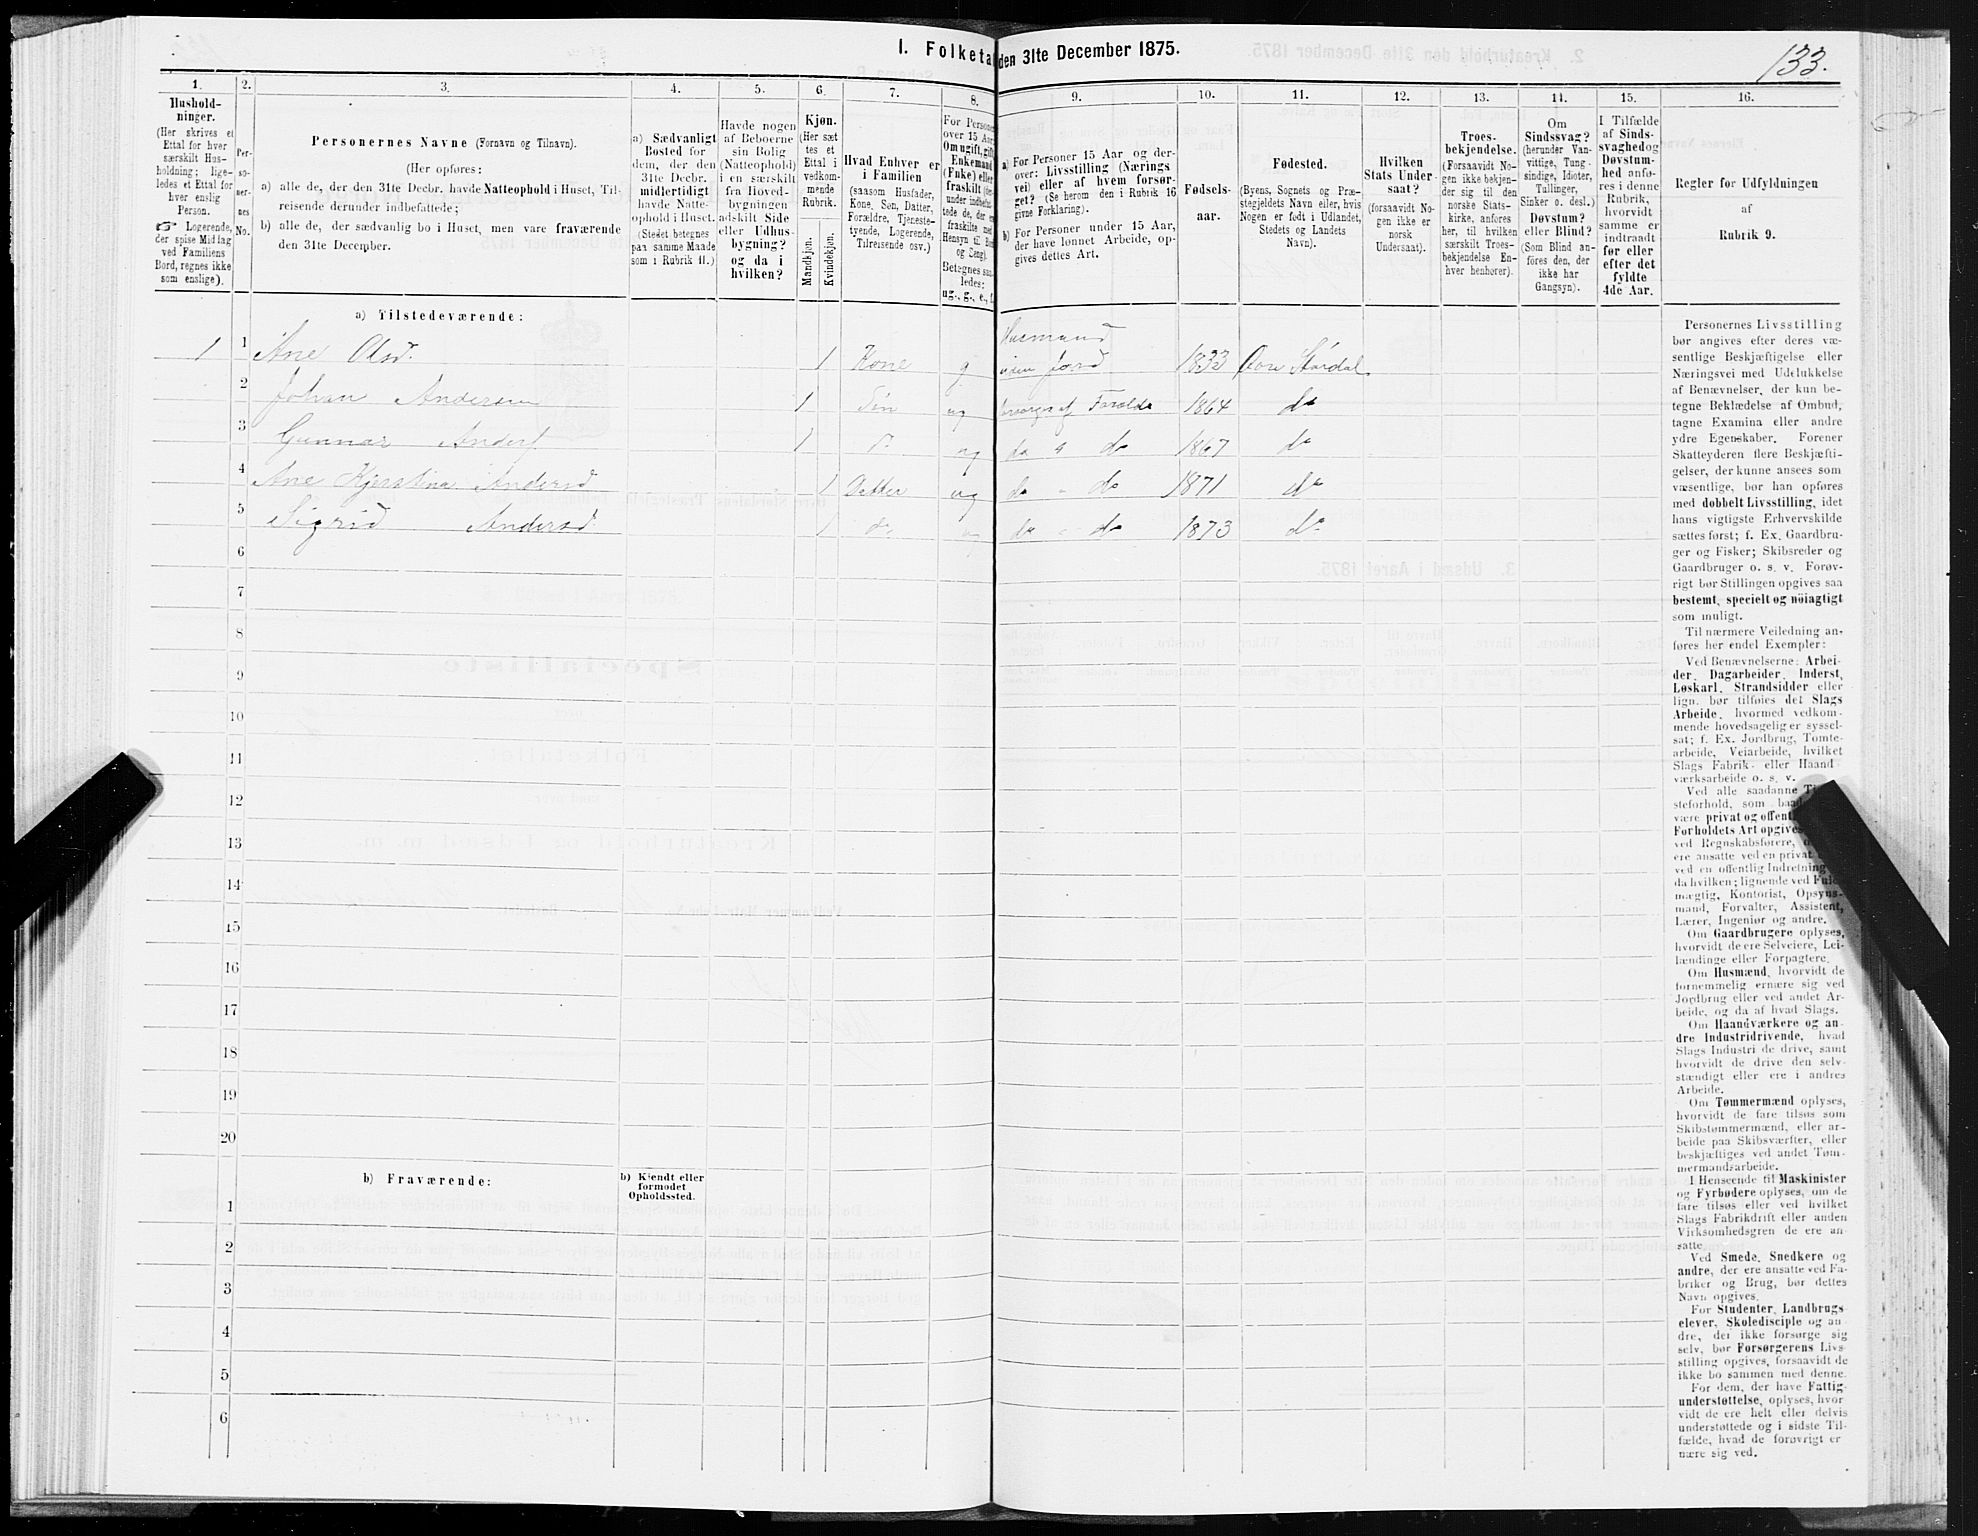 I. Folketa den 31te December 1875.
133.
1. 2. 3. 4. 5. 6. 7. 8. 9. 10. 11. 12. 13. 14. 15. 16.
Hushold-
ninger.
(Her skrives et
Ettal for hver
særskilt Hus-
holdning; lige-
ledes et Ettal for
hver enslig
Person.
☞ Logerende,
der spise Middag
ved Familiens
Bord, regnes ikke
som enslige).
Per-
so-
ner-
nes
No.
Personernes Navne (Fornavn og Tilnavn).
(Her opføres:
a) alle de, der den 31te Decbr. havde Natteophold i Huset, Til-
reisende derunder indbefattede;
b) alle de, der sædvanlig bo i Huset, men vare fraværende
den 31te December.
a) Sædvanligt
Bosted for
dem, der den
31te Decbr.
midlertidigt
havde Natte-
ophold i Huset.
(Stedet betegnes
paa samme Maade
som i Rubrik 11.)
Havde nogen
af Beboerne
sin Bolig
(Natteophold)
i en særskilt
fra Hoved-
bygningen
adskilt Side
eller Udhus-
bygning?
og da i
hvilken?
Kjøn.
(Her sæt
tes et
Ettal i
vedkom-
mende
Rubrik.
Mandkjøn.
Kvindekjøn.
Hvad Enhver er
i Familien
(saasom Husfader,
Kone, Søn, Datter,
Forældre, Tjeneste-
tyende, Logerende,
Tilreisende osv.)
For Personer
over 15 Aar:
Om ugift, gift,
Enkemand
(Enke) eller
fraskilt (der-
under indbefat-
tede de, der er
fraskilte med
Hensyn til Bord
og Seng).
Betegnes saa-
ledes:
ug., g., e., f.
a) For Personer 15 Aar og der-
over: Livsstilling (Nærings
vei) eller af hvem forsør-
get? (Se herom den i Rubrik 16
givne Forklaring).
b) For Personer under 15 Aar,
der have lønnet Arbeide, op-
gives dettes Art.
Fødsels-
aar.
Fødested.
(Byens, Sognets og Præ-
stegjeldets Navn eller, hvis
Nogen er født i Udlandet,
Stedets og Landets
Navn).
Hvilken
Stats Under-
saat?
(forsaavidt No-
gen ikke er
norsk
Undersaat).
Troes-
bekjendelse.
(Forsaavidt No-
gen ikke bekjen-
der sig til den
norske Stats-
kirke, anføres
her, til hvilken
særskilt Troes-
bekjendelse En-
hver henhører).
Om
Sindssvag?
(herunder Van-
vittige, Tung-
sindige, Idioter,
Tullinger,
Sinker o. desl.)
Døvstum?
eller Blind?
(Som Blind an-
føres den, der
ikke har
Gangsyn).
I Tilfælde
af Sinds-
svaghed og
Døvstum-
hed anfø-
res i denne
Rubrik,
hvorvidt
samme er
indtraadt
før eller
efter det
fyldte
4de Aar.
Regler for Udfyldningen
af
Rubrik 9.
a) Tilstedeværende:
1 1 Ane Olsd. 1 Kone g Husmand uden Jord 1833 Øvre Størdal
2 Johan Andersen 1 Søn ug forsørges af Forældr 1864 do
3 Gunnar Anders 1 do ug do do 1867 do
4 Ane Kjerstina Andersd 1 Datter ug do " do 1871 do
5 Sigrid Andersd 1 do ug do " do 1873 do
6
7
8
9
10
11
12
13
14
15
16
17
18
19
20
b) Fraværende:
b) Kjendt eller
formodet
Opholdssted.
1
2
3
4
5
6
Personernes Livsstilling
bør angives efter deres væ-
sentlige Beskjæftigelse eller
Næringsvei med Udelukkelse
af Benævnelser, der kun be-
tegne Beklædelse af Ombud,
tagne Examina eller andre
ydre Egenskaber. Forener
Skatteyderen flere Beskjæfti-
gelser, der kunne ansees som
væsentlige, bør han opføres
med dobbelt Livsstilling, idet
hans vigtigste Erhvervskilde
sættes først; f. Ex. Gaardbru-
ger og Fisker; Skibsreder og
Gaardbruger o. s. v. Forøv-
rigt bør Stillingen opgives saa
bestemt, specielt og nöiagtigt
som muligt.
Til nærmere Veiledning an-
føres her endel Exempler:
Ved Benævnelserne: Arbei-
der, Dagarbeider, Inderst,
Løskarl, Strandsidder eller
lign. bør tilføies det Slags
Arbeide, hvormed vedkom-
mende hovedsagelig er syssel-
sat; f. Ex. Jordbrug, Tomte-
arbeide, Veiarbeide, hvilket
Slags Fabrik- eller Haand-
værksarbeide o. s. v.
Ved alle saadanne
steforhold, som
være privat og offent
Forholdets Art opgives
ved Regnskabsførere,
ere ansatte ved en privat
ved en offentlig Indretning
da hvilken; lignende ved Fuld-
mægtig, Kontorist, Opsyns-
mand, Forvalter, Assistent,
Lærer, Ingeniør og andre.
Om Gaardbrugere oplyses,
hvorvidt de ere Selveiere, Lei-
lændinge eller Forpagtere.
Om Husmænd, hvorvidt de
fornemmelig ernære sig ved
Jordbrug eller ved andet Ar-
beide, og da af hvad Slags.
Om Haandværkere og an-
dre Industridrivende, hvad
Slags Industri de drive, samt
hvorvidt de drive den selv-
stændigt eller ere i andres
Arbeide.
Om Tømmermænd oplyses,
hvorvidt de fare tilsøs som
Skibstømmermænd, eller ar-
beide paa Skibsværfter, eller
beskjæftiges ved andet Tøm-
mermandsarbeide.
I Henseende til Maskinister
og Fyrbødere oplyses, om de
fare tilsøs eller ved hvilket
Slags Fabrikdrift eller anden
Virksomhedsgren de ere an-
satte.
Ved Smede, Snedkere og
andre, der ere ansatte ved Fa-
briker og Brug, bør dettes
Navn opgives.
For Studenter, Landbrugs-
elever, Skoledisciple og an-
dre, der ikke forsørge sig
selv, bør Forsørgerens Livs-
stilling opgives, forsaavidt de
ikke bo sammen med denne.
For dem, der have Fattig-
understøttelse, oplyses, hvor
vidt de ere helt eller delvis
understøttede og i sidste Til-
fælde, hvad de forøvrigt er-
nære sig ved.